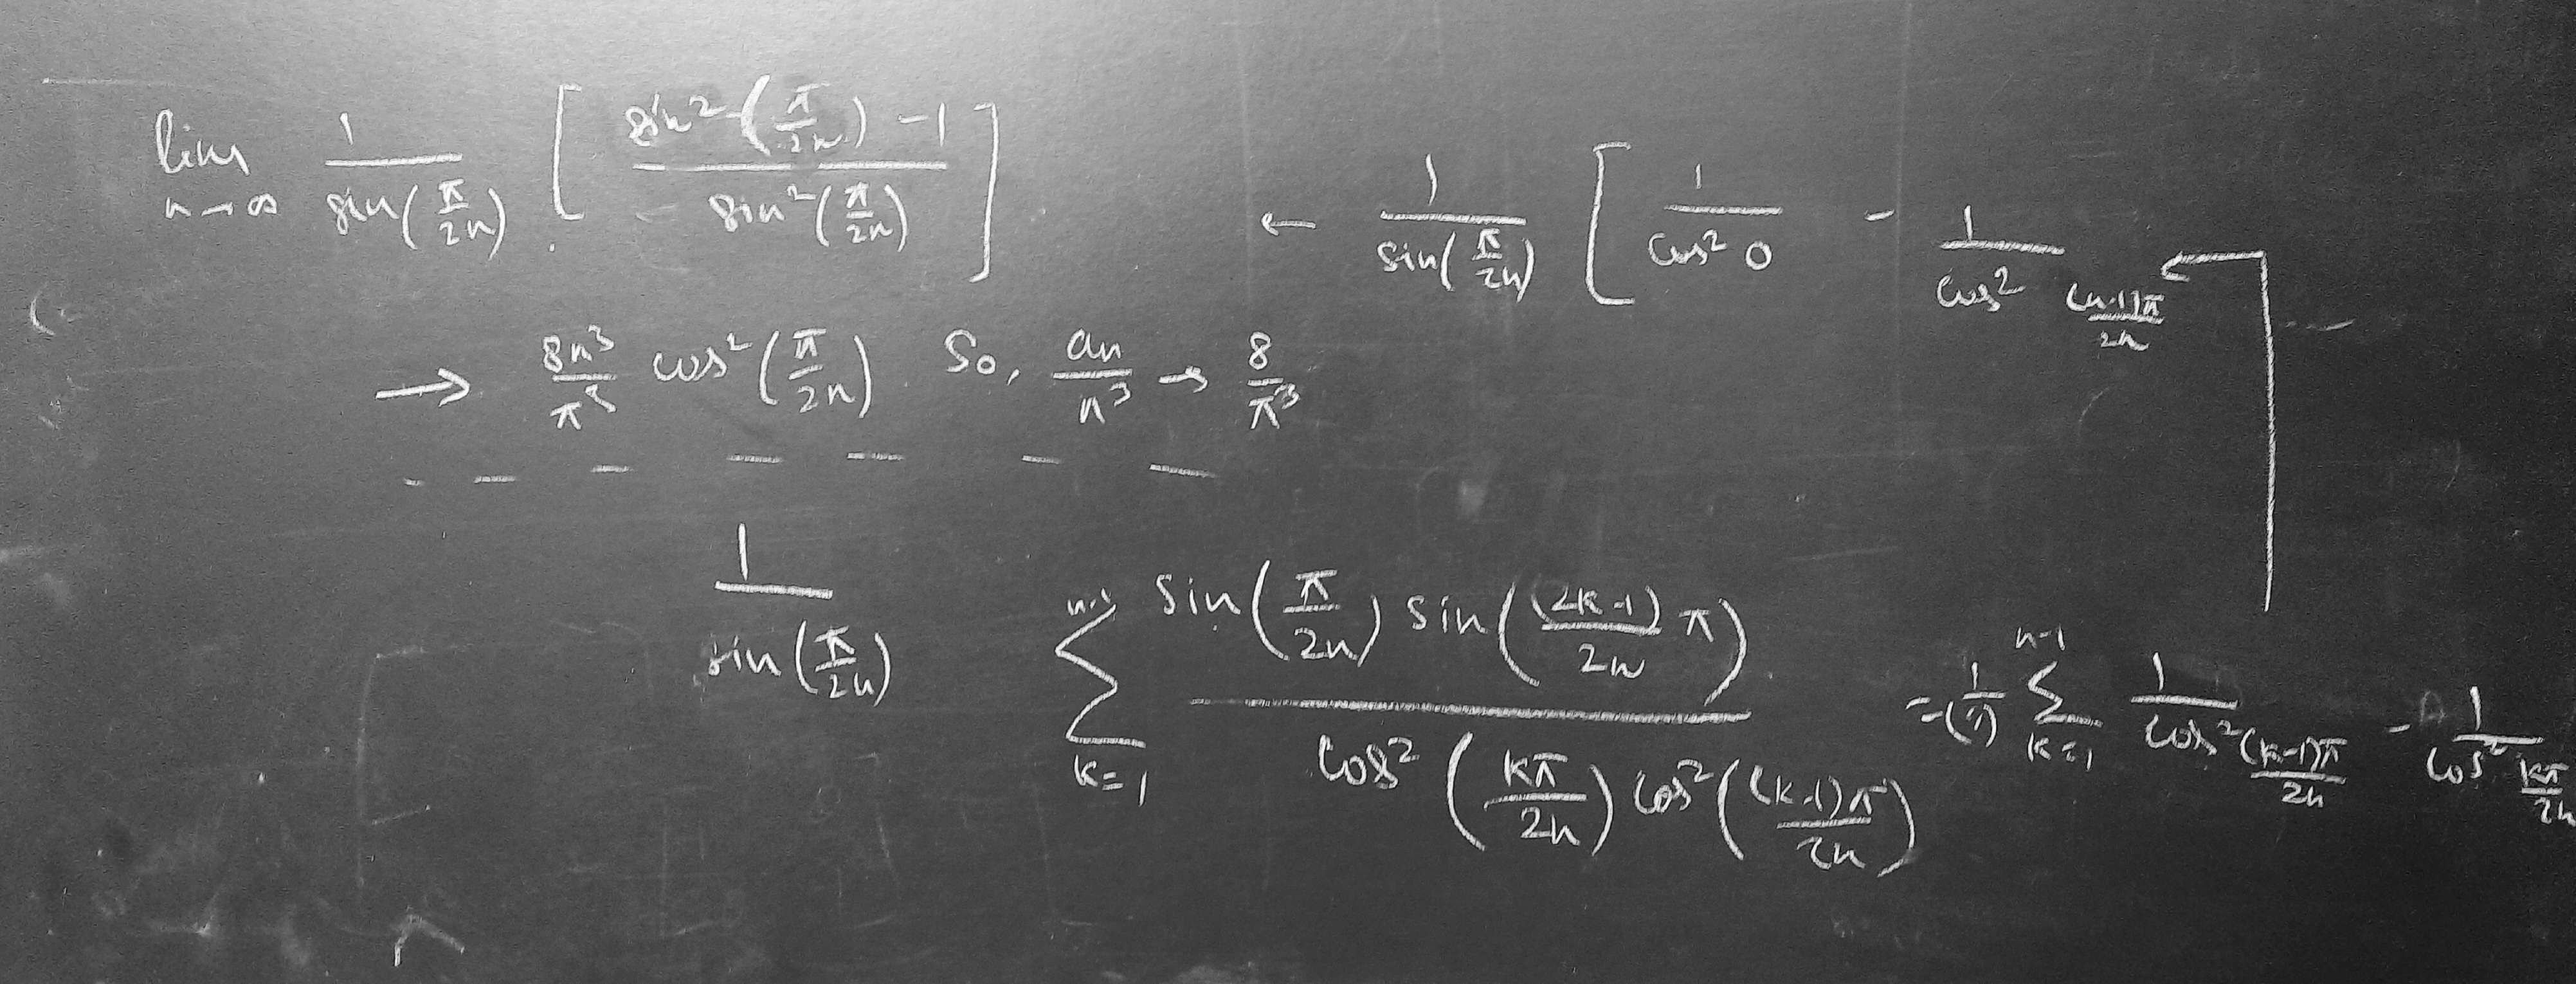 lim n→∞ 1/sin(π/2n) [ (sin²(π/2n) - 1) / sin²(π/2n) ]
← 1/sin(π/2n) [ 1/cos² 0 - 1/cos² (n-1)π/2n
→ 8n³/π³ cos²(π/2n). So, an/n³ → 8/π³
1/sin(π/2n) Σ_{k=1}^{n-1} sin(π/2n) sin((2k-1)/2n π) / cos²(kπ/2n) cos²((k-1)π/2n) Σ_{k=1}^{n-1} 1/cos² (k-1)π/2n - 1/cos² kπ/2n